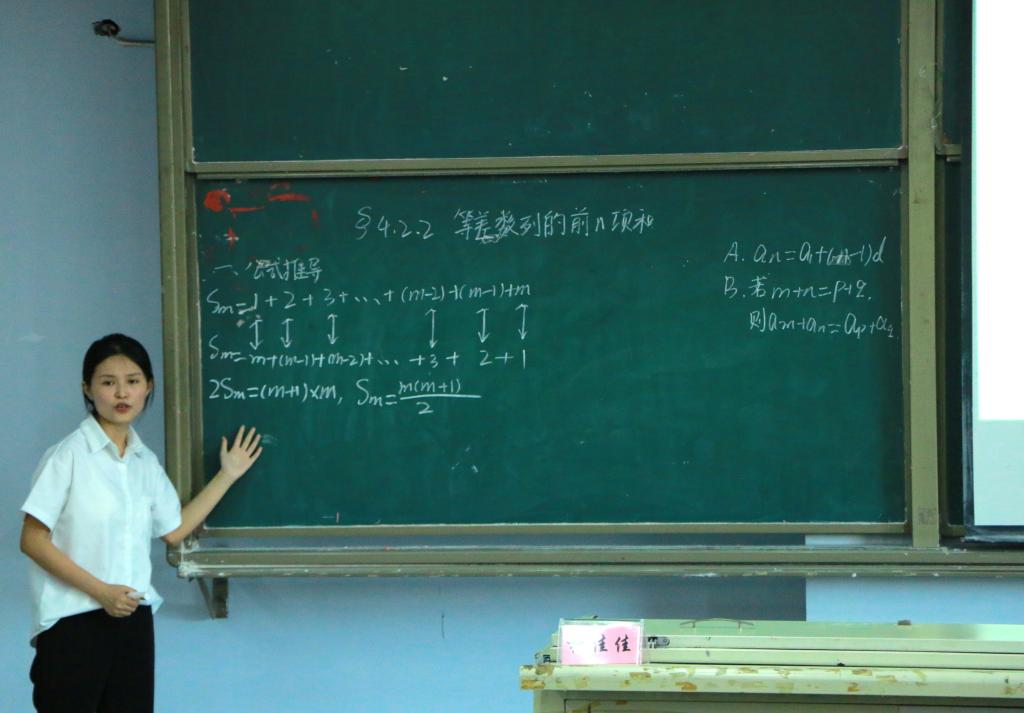 §4.2.2 等差数列的前n项和
一、公式推导
Sm=1+2+3+…+(m-2)+(m-1)+m
Sm=m+(m-1)+(m-2)+…+3+2+1
2Sm=(m+1)×m, Sm=m(m+1)/2
A. an=a1+(n-1)d
B. 若m+n=p+q,
则am+an=ap+aq
佳佳